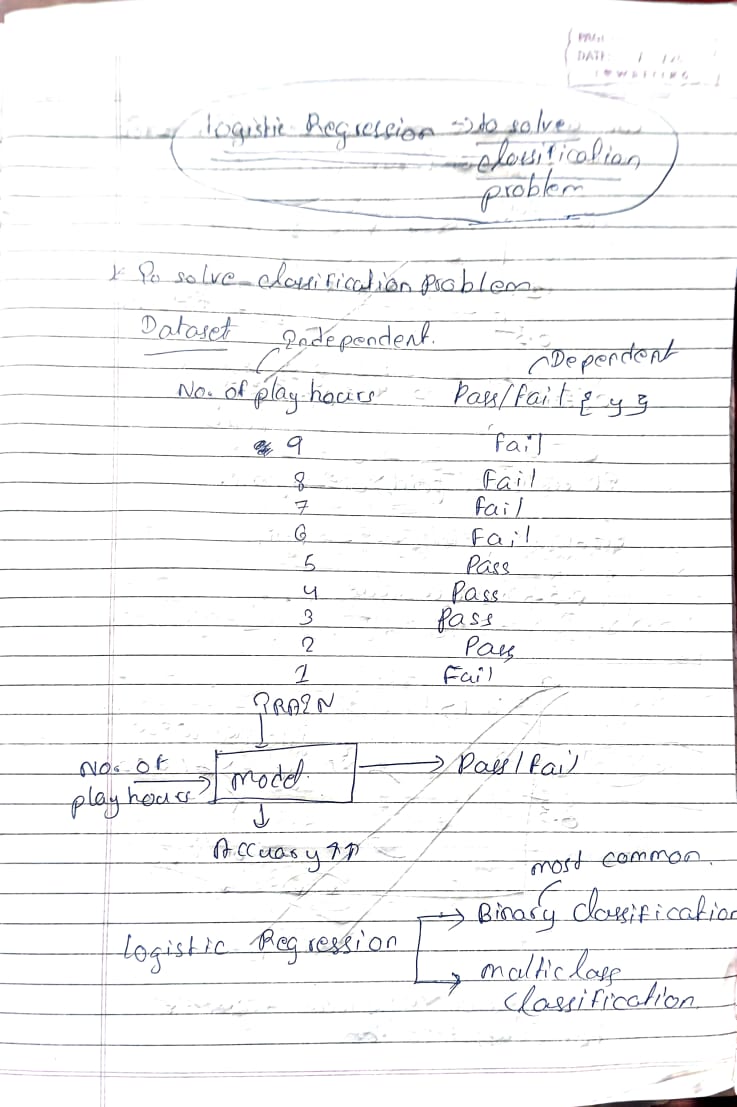 PAGE
DATE
Logistic Regression → to solve
classification
problem
To solve classification problem
Dataset Independent.
Dependent
No. of play hours Pass/Fail {y}
9 fail
8 Fail
7 fail
6 Fail
5 Pass
4 Pass
3 Pass
2 Pass
1 Fail
TRAIN
No. of → model. → Pass/Fail
play hours
Accuasy ↑↑
most common.
→ Binary Classification
Logistic Regression
→ multiclass
classification